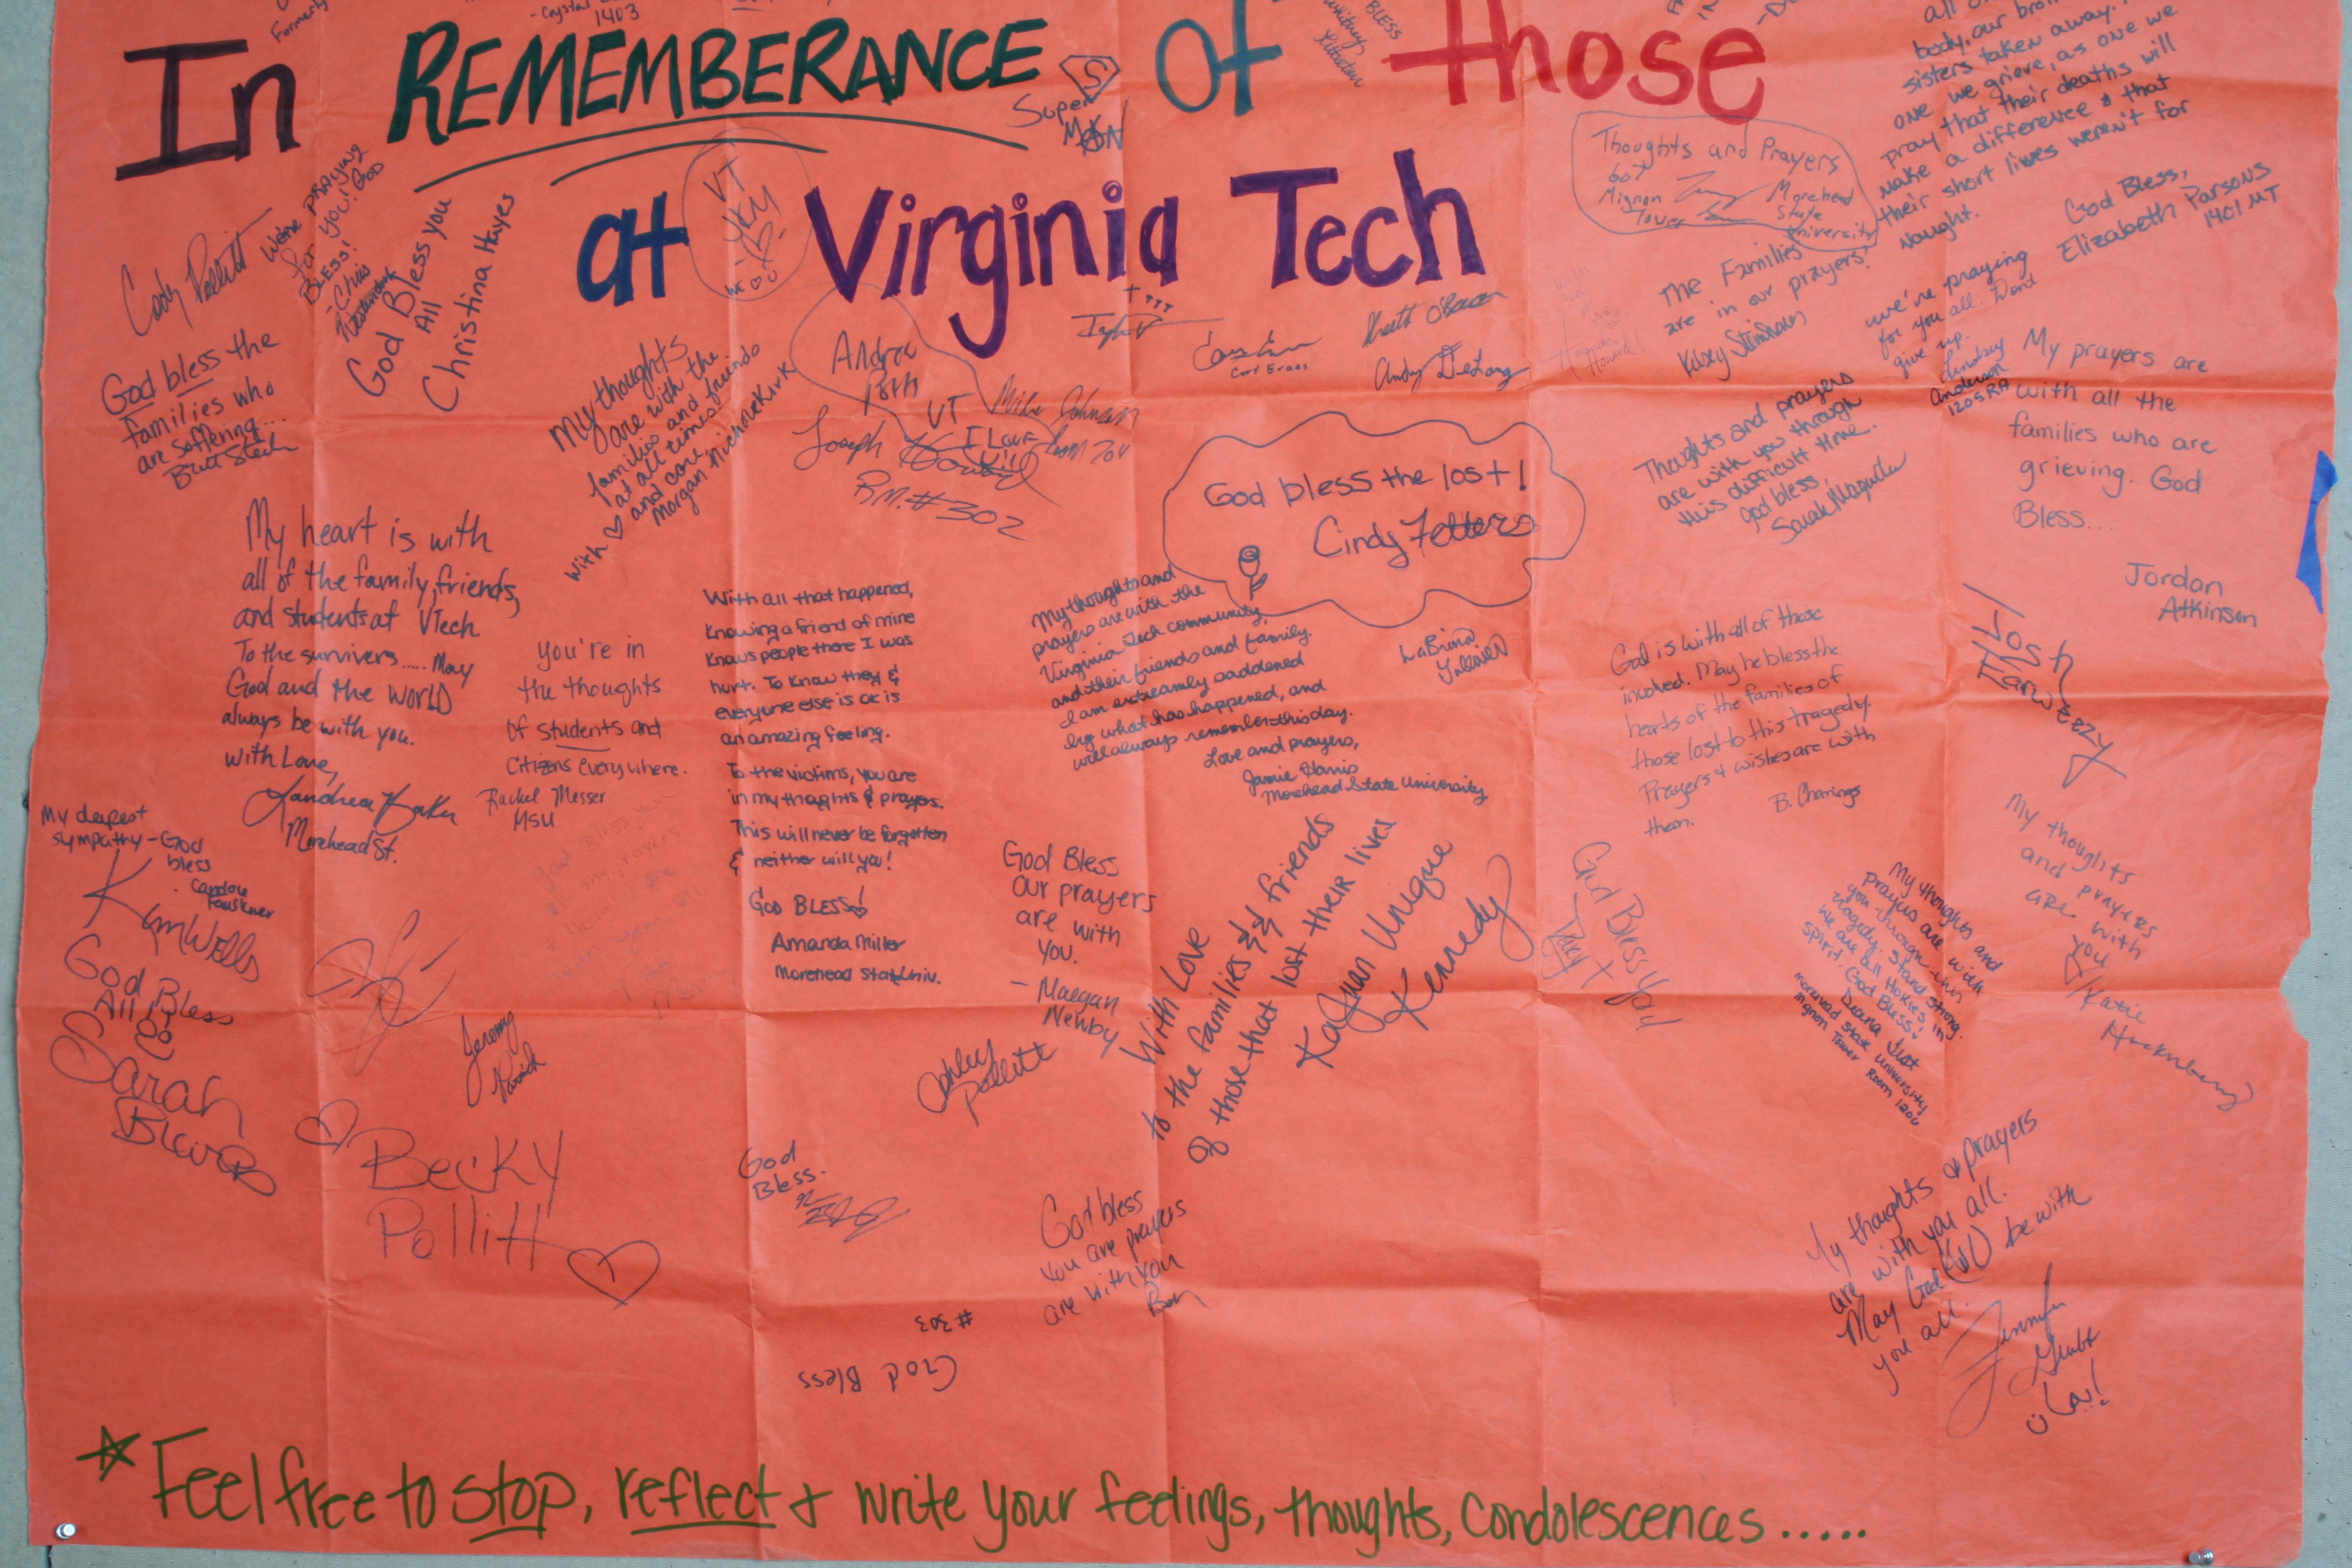 Formerly
-Crystal
1403
BLESS
all
body, our
sisters taken away.
one we grieve, as one we
pray that their deaths will
make a difference & that
their short lives weren't for
nought.
God Bless,
Elizabeth Parsons
1401 MT
In REMEMBERANCE of those
at Virginia Tech
S
Super
MAN
VT
Thoughts and Prayers
Mignon
Tower
Morehead
State
University
We're PRAYING
for you! God
BLESS!
-Chris
Cody Pollitt
God Bless you
All
Christina Hayes
God bless the
families who
are suffering...
My thoughts
are with the
families and friends
at all times.
and care.
With ♡
Morgan
Andrea
VT
Mike Johnson
Room 204
Joseph
I Love
RM.#302
Cory Evans
Andy DeLong
The Families
are in our prayers!
Kasey
we're praying
for you all. Dont
give up.
Lindsay
Anderson
1205 RA
My prayers are
with all the
families who are
grieving. God
Bless...
Jordan
Atkinson
Thoughts and prayers
are with you through
this difficult time.
God bless,
Sarah
God bless the lost!
Cindy Fetters
My heart is with
all of the family, friends,
and students at VTech
To the survivers..... May
God and the WORLD
always be with you.
With Love,
Morehead St.
You're in
the thoughts
of students and
Citizens everywhere.
Rachel Messer
MSU
With all that happened,
Knowing a friend of mine
Knows people there I was
hurt. To Know they &
everyone else is ok is
an amazing feeling.
To the victims, you are
in my thoughts & prayers.
This will never be forgotten
& neither will you!
GOD BLESS!
Amanda Miller
Morehead State Univ.
My thoughts and
prayers are with the
Virginia Tech community,
and their friends and family.
I am extreamly saddened
by what has happened, and
will always remember this day.
Love and prayers,
Jamie Harris
Morehead State University
God is with all of those
involved. May he bless the
hearts of the families of
those lost to this tragedy.
Prayers & wishes are with
them.
Josh
My deepest
sympathy - God
bless
Kim Wells
God Bless
All!
Sarah
Blevins
Jeremy
Becky
Pollitt
God Bless
Our prayers
are with
You.
- Maegan
Newby
Ashley
Pollitt
With Love
to the families & friends
of those that lost their lives
KaJuan Unique
Kennedy
God Bless You
My thoughts and
prayers are with
you through this
tragedy. Stand strong.
We are all Hokies in
spirit. God Bless!
Morehead State University
Mignon Tower Room 1206
My thoughts
and prayers
are with
you
Katie
God
Bless.
God bless
you are prayers
are with you
Ben
#303
God Bless
My thoughts & prayers
are with you all.
May God be with
you all.
Jennifer
Feel free to stop, reflect & write your feelings, thoughts, condolescences.....